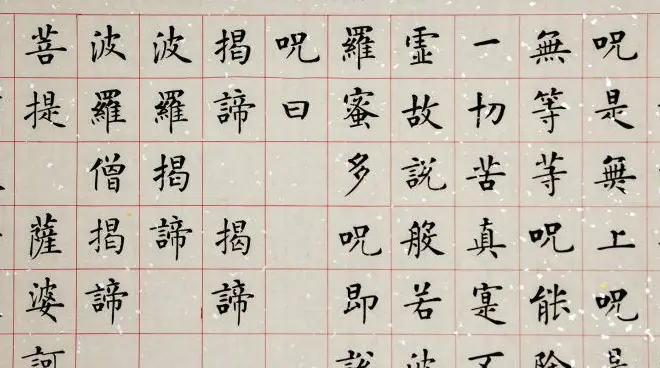 呪是無上呪是
無等等呪能除
一切苦真寔不
虛故說般若波
羅蜜多呪即說
呪曰
揭諦 揭諦
波羅揭諦
波羅僧揭諦
菩提 薩婆訶